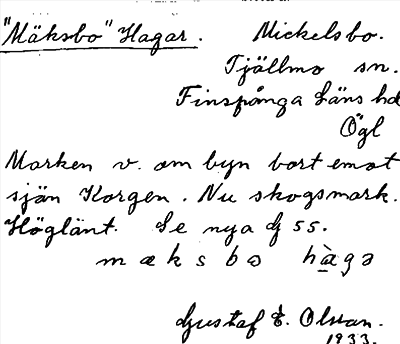 "Mäksbo" Hagar. Mickelsbo.
Tjällmo sn.
Finspånga Läns hd
Ögl
Marken v. om byn bort emot
sjön Korgen. Nu skogsmark.
Höglänt. Se nya 55.
mæksbo hàgə
Gustaf E. Olsson.
1933.